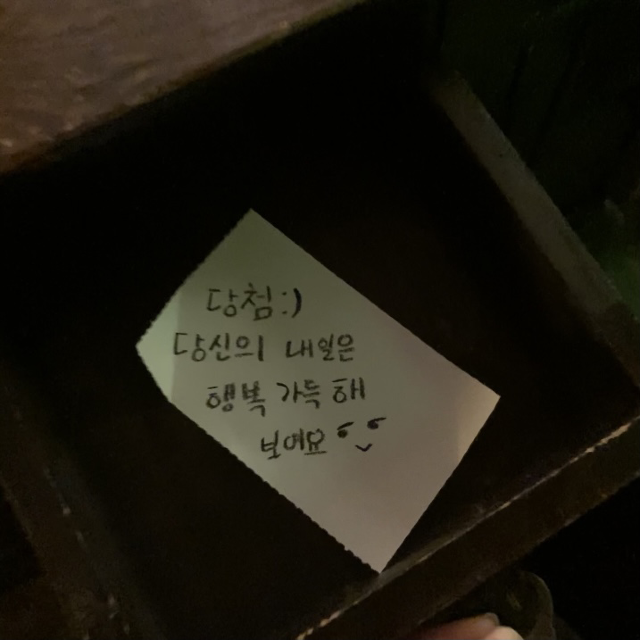 당첨:)
당신의 내일은
행복 가득 해
보여요